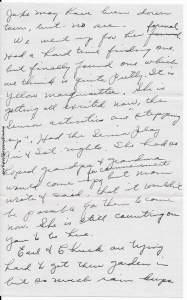 Jake may have been down
town, but no use.
We went up for her formal
Had a hard time finding one,
but finally found one which
we think is quite pretty. It is
yellow Marquisette. She is
getting all excited now, the
Senior activities are stepping
up. Had the Senior Play
Fri & Sat nights. She had so
hoped grandpa & grandma
would come for commencement but mom
wrote & said that it wouldn't
be possible for them to come
now. She is still counting on
you to be here.
Earl & Chuck are trying
hard to get their garden in
but so much rain keeps